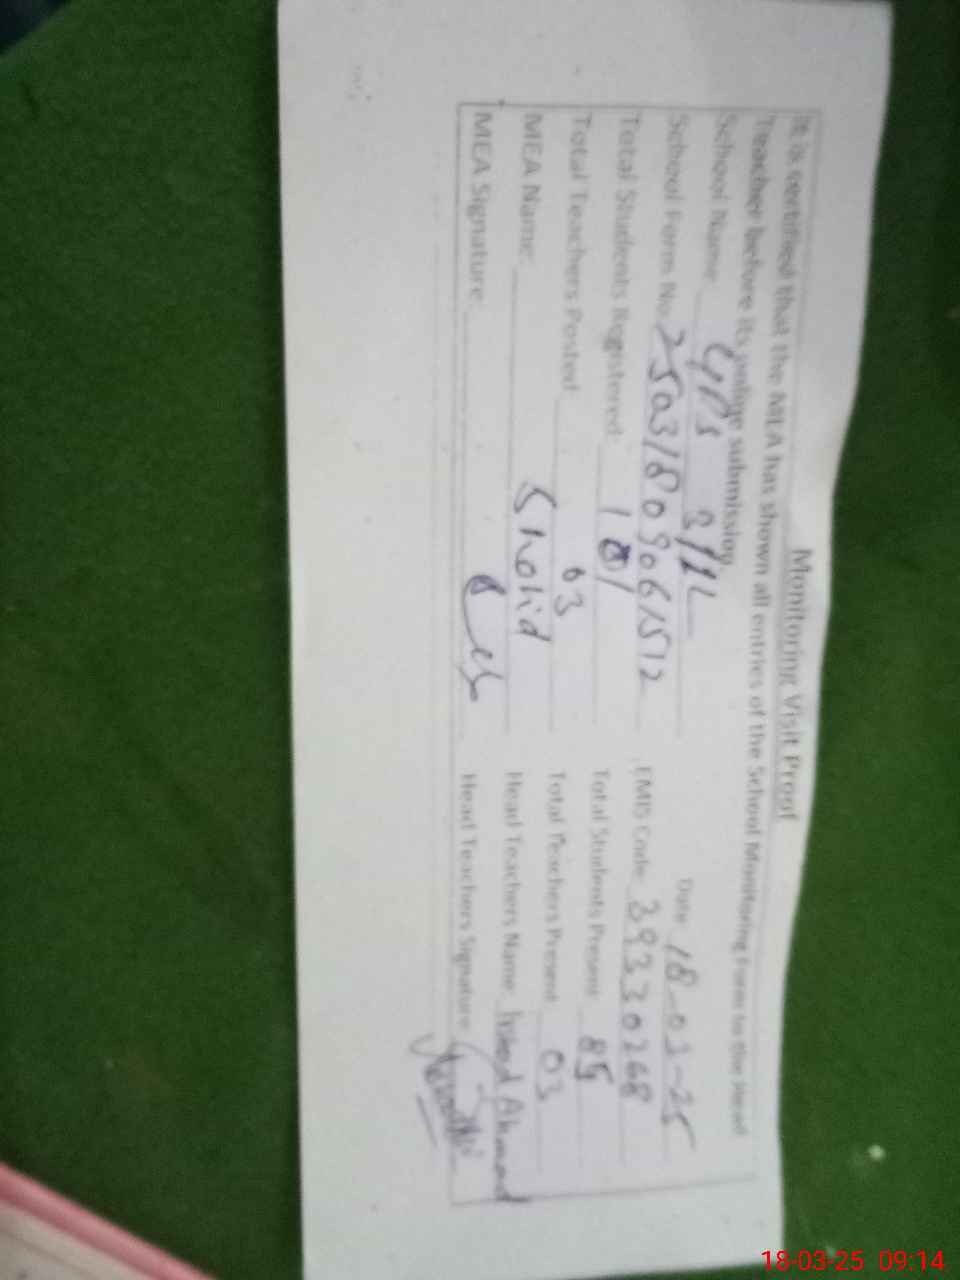 Monitoring Visit Proof
It is certified that the MEA has shown all entries of the School Monitoring Form to the Head
Teacher before its online submission
School Name GPS 3/1L Date 18-03-25
School Form No. 25031809061512 EMIS Code 39330268
Total Students Registered: 101 Total Students Present 85
Total Teachers Posted 03 Total Teachers Present 03
MEA Name Shahid Head Teachers Name Ahmad
MEA Signature Head Teachers Signature
18-03-25 09:14